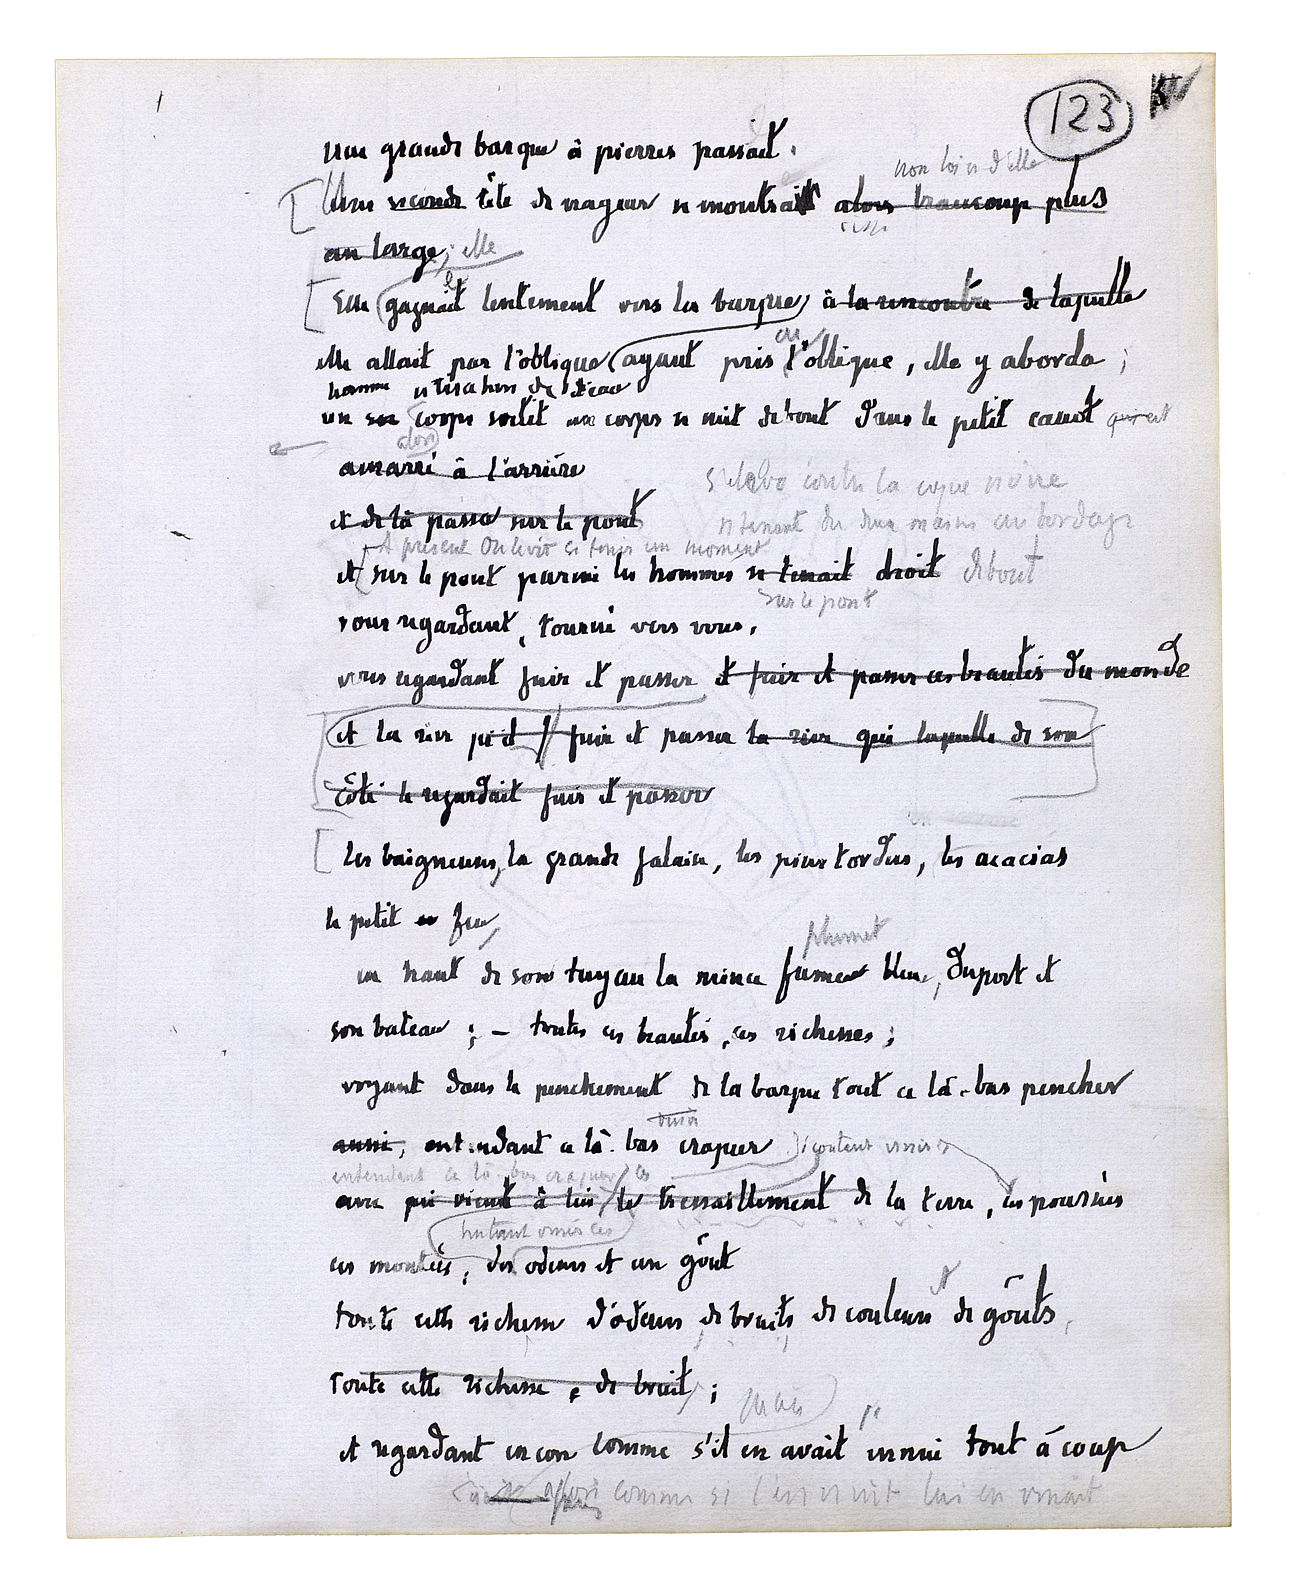 123
une grande barque à pierres passait.
non loin d'elle
Une seconde tête de nageur se montrait alors beaucoup plus
au large ; elle
Elle gagnait lentement vers la barque à la rencontre de laquelle
elle allait par l'oblique ayant pris l'oblique, elle y aborda ;
homme
un corps sortit un corps se mit debout dans le petit canot qui est
alors
amarré à l'arrière
s'éleva contre la coque noire
et de là passa sur le pont
se tenant des deux mains au bordage
A présent on le vit se tenir un moment
et sur le pont parmi les hommes se tenait droit debout
sur le pont
vous regardant, tourné vers vous,
vous regardant fuir et passer et fuir et passer ces beautés du monde
et la rive fuir et passer la rive qui laquelle de son
côté le regardait fuir et passer
les baigneuses, la grande falaise, les pins tordus, les acacias
le petit feu,
plumet
en haut de son tuyau la mince fumée bleue, du port et
son bateau ; – toutes ces beautés, ces richesses ;
voyant dans le penchement de la barque tout ce là-bas pencher
aussi, entendant ce là-bas craquer écoutant venir
entendant ce là-bas craquer ces
avec qui vient à lui le tressaillement de la terre, ces poussées
sentant venir ces
ces montées, des odeurs et un goût
et
toute cette richesse d'odeurs de bruits de couleurs de goûts,
toute cette richesse, de bruit ;
puis
et regardant encore comme s'il en avait ennui tout à coup
alors comme si l'ennui lui en venait